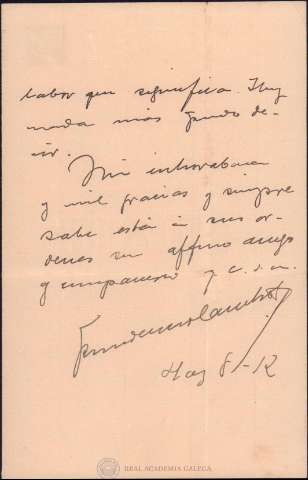 labor que significa. Hoy
nada más puedo de-
cir.
Mi enhorabuena
y mil gracias y siempre
sabe está á sus ór-
denes su affmo amigo
y compañero q. e. s. m.
Hoy 8-12
REAL ACADEMIA GALEGA